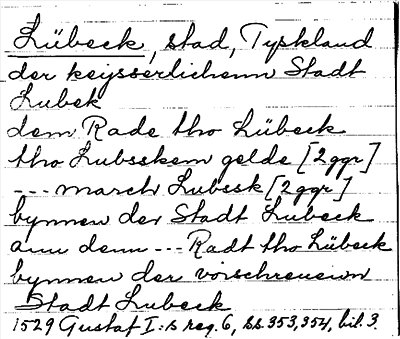 Lübeck, stad, Tyskland
der keysserlichenn Stadt
Lubek
dem Rade tho Lübeck
tho Lubsskem gelde [2ggr]
--- march Lubssk [2ggr]
bynnen der Stadt Lubeck
ann denn --- Radt tho Lübeck
bynnen der vorschreuenn
Stadt Lubeck
1529 Gustaf I:s reg. 6, ss. 353, 354, bil. 3.